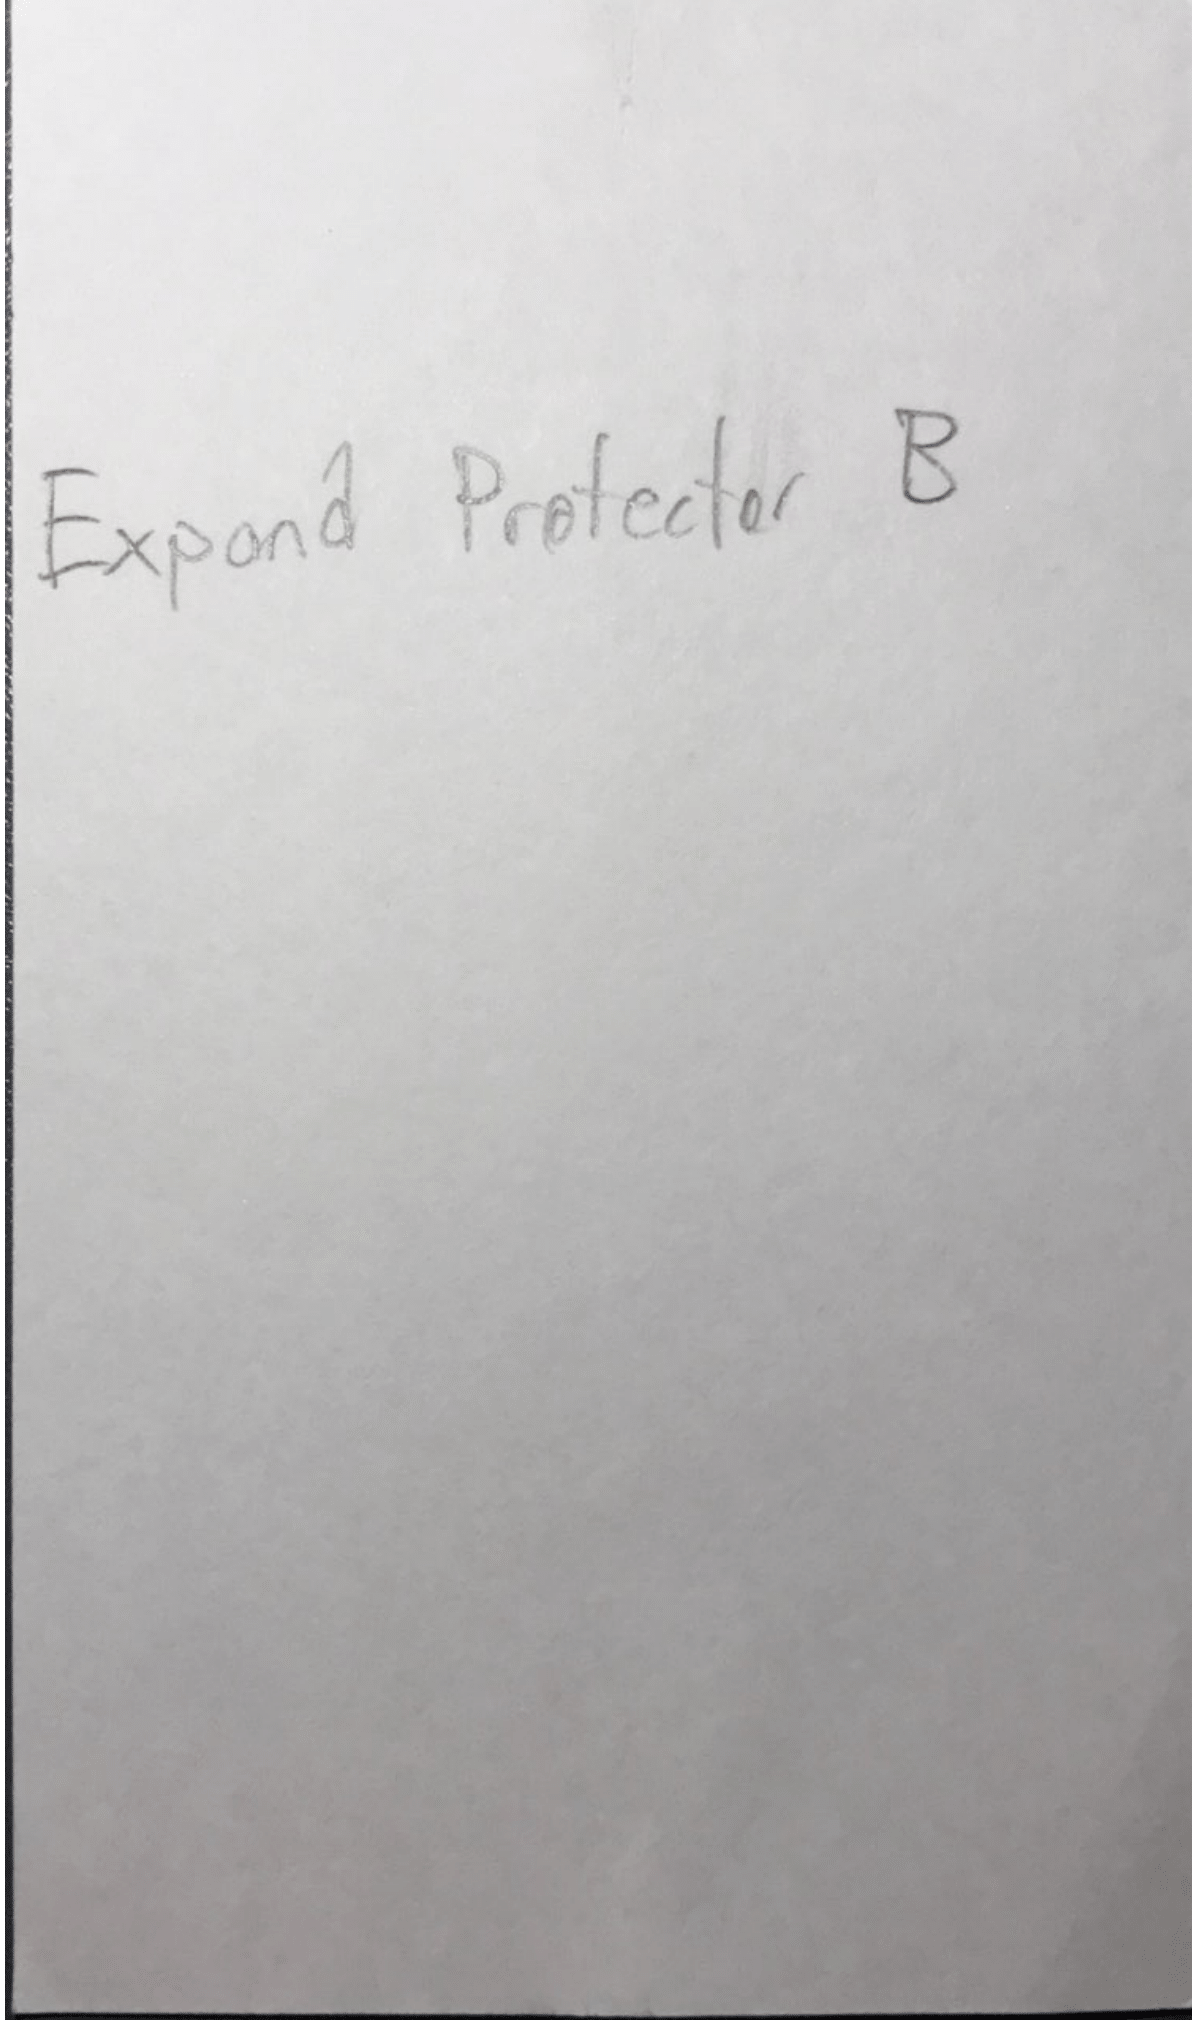 Expand Protector B